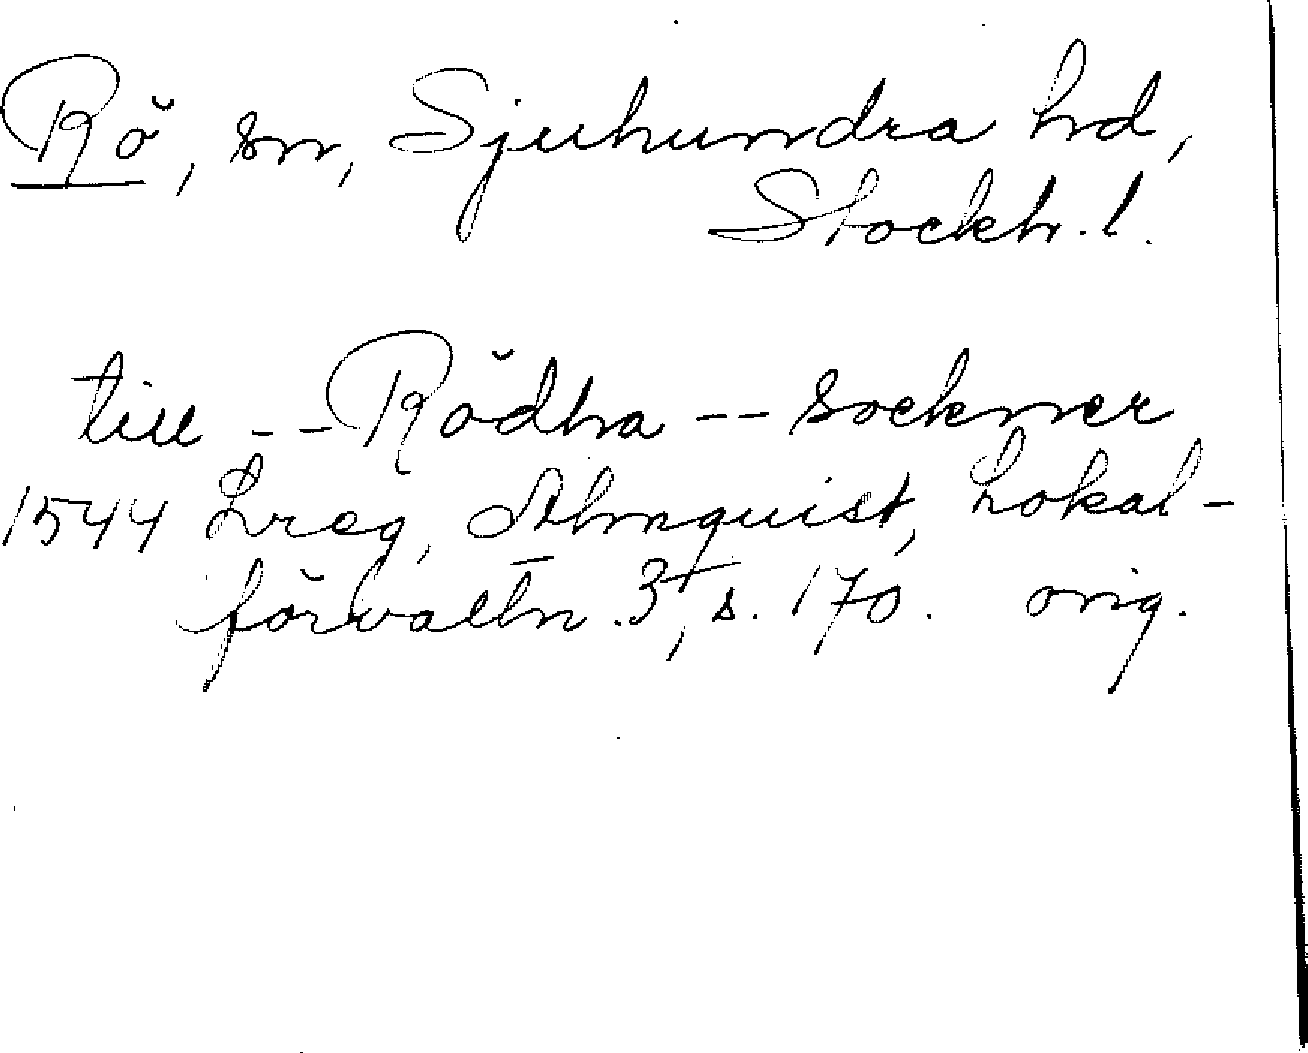 Rö, sn, Sjuhundra hd,
Stockh. l.
till -- Rödha -- sockner
1544 Lreg, Almquist, Lokal-
förvaltn. 3, s. 170. orig.